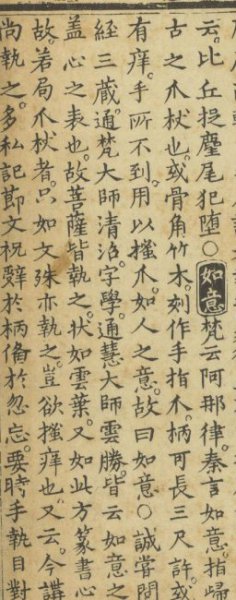 云。比丘捉麈尾犯墮○如意梵云阿那律。秦言如意。指歸
古之爪杖也。或骨角竹木。刻作手指爪。柄可長三尺許。或
有痒。手所不到。用以搔爪。如人之意。故曰如意○誠嘗問
經三藏。通梵大師清沼字學。通慧大師雲勝。皆云如意之
盖心之表也。故菩薩皆執之。狀如雲葉。又如此方篆書心
故。若局爪杖者。只如文殊亦執之。豈欲搔痒也。又云。今講
尚執之。多私記節文祝辭於柄俻於忽忘。要時手執目對